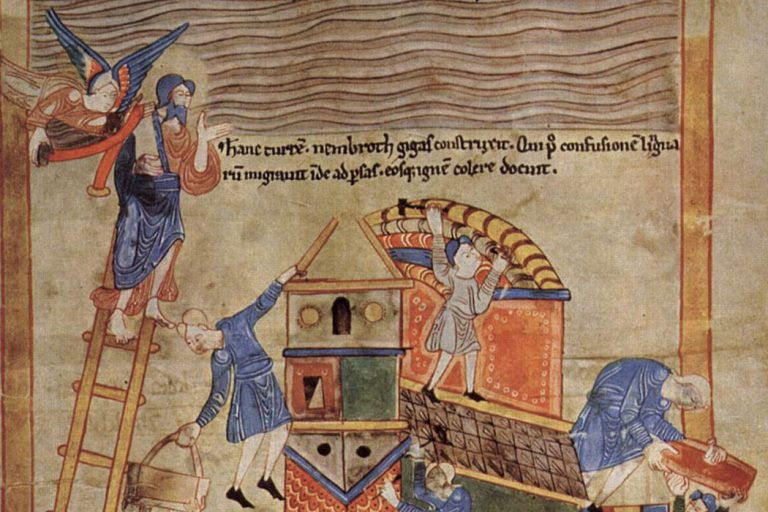 hanc turrē. nembroth gigas construxit. Qui p⁹ confusionē lı̄gua
rū migrauit īde ad p̱sas. eosq̨ ignē colere docuit.